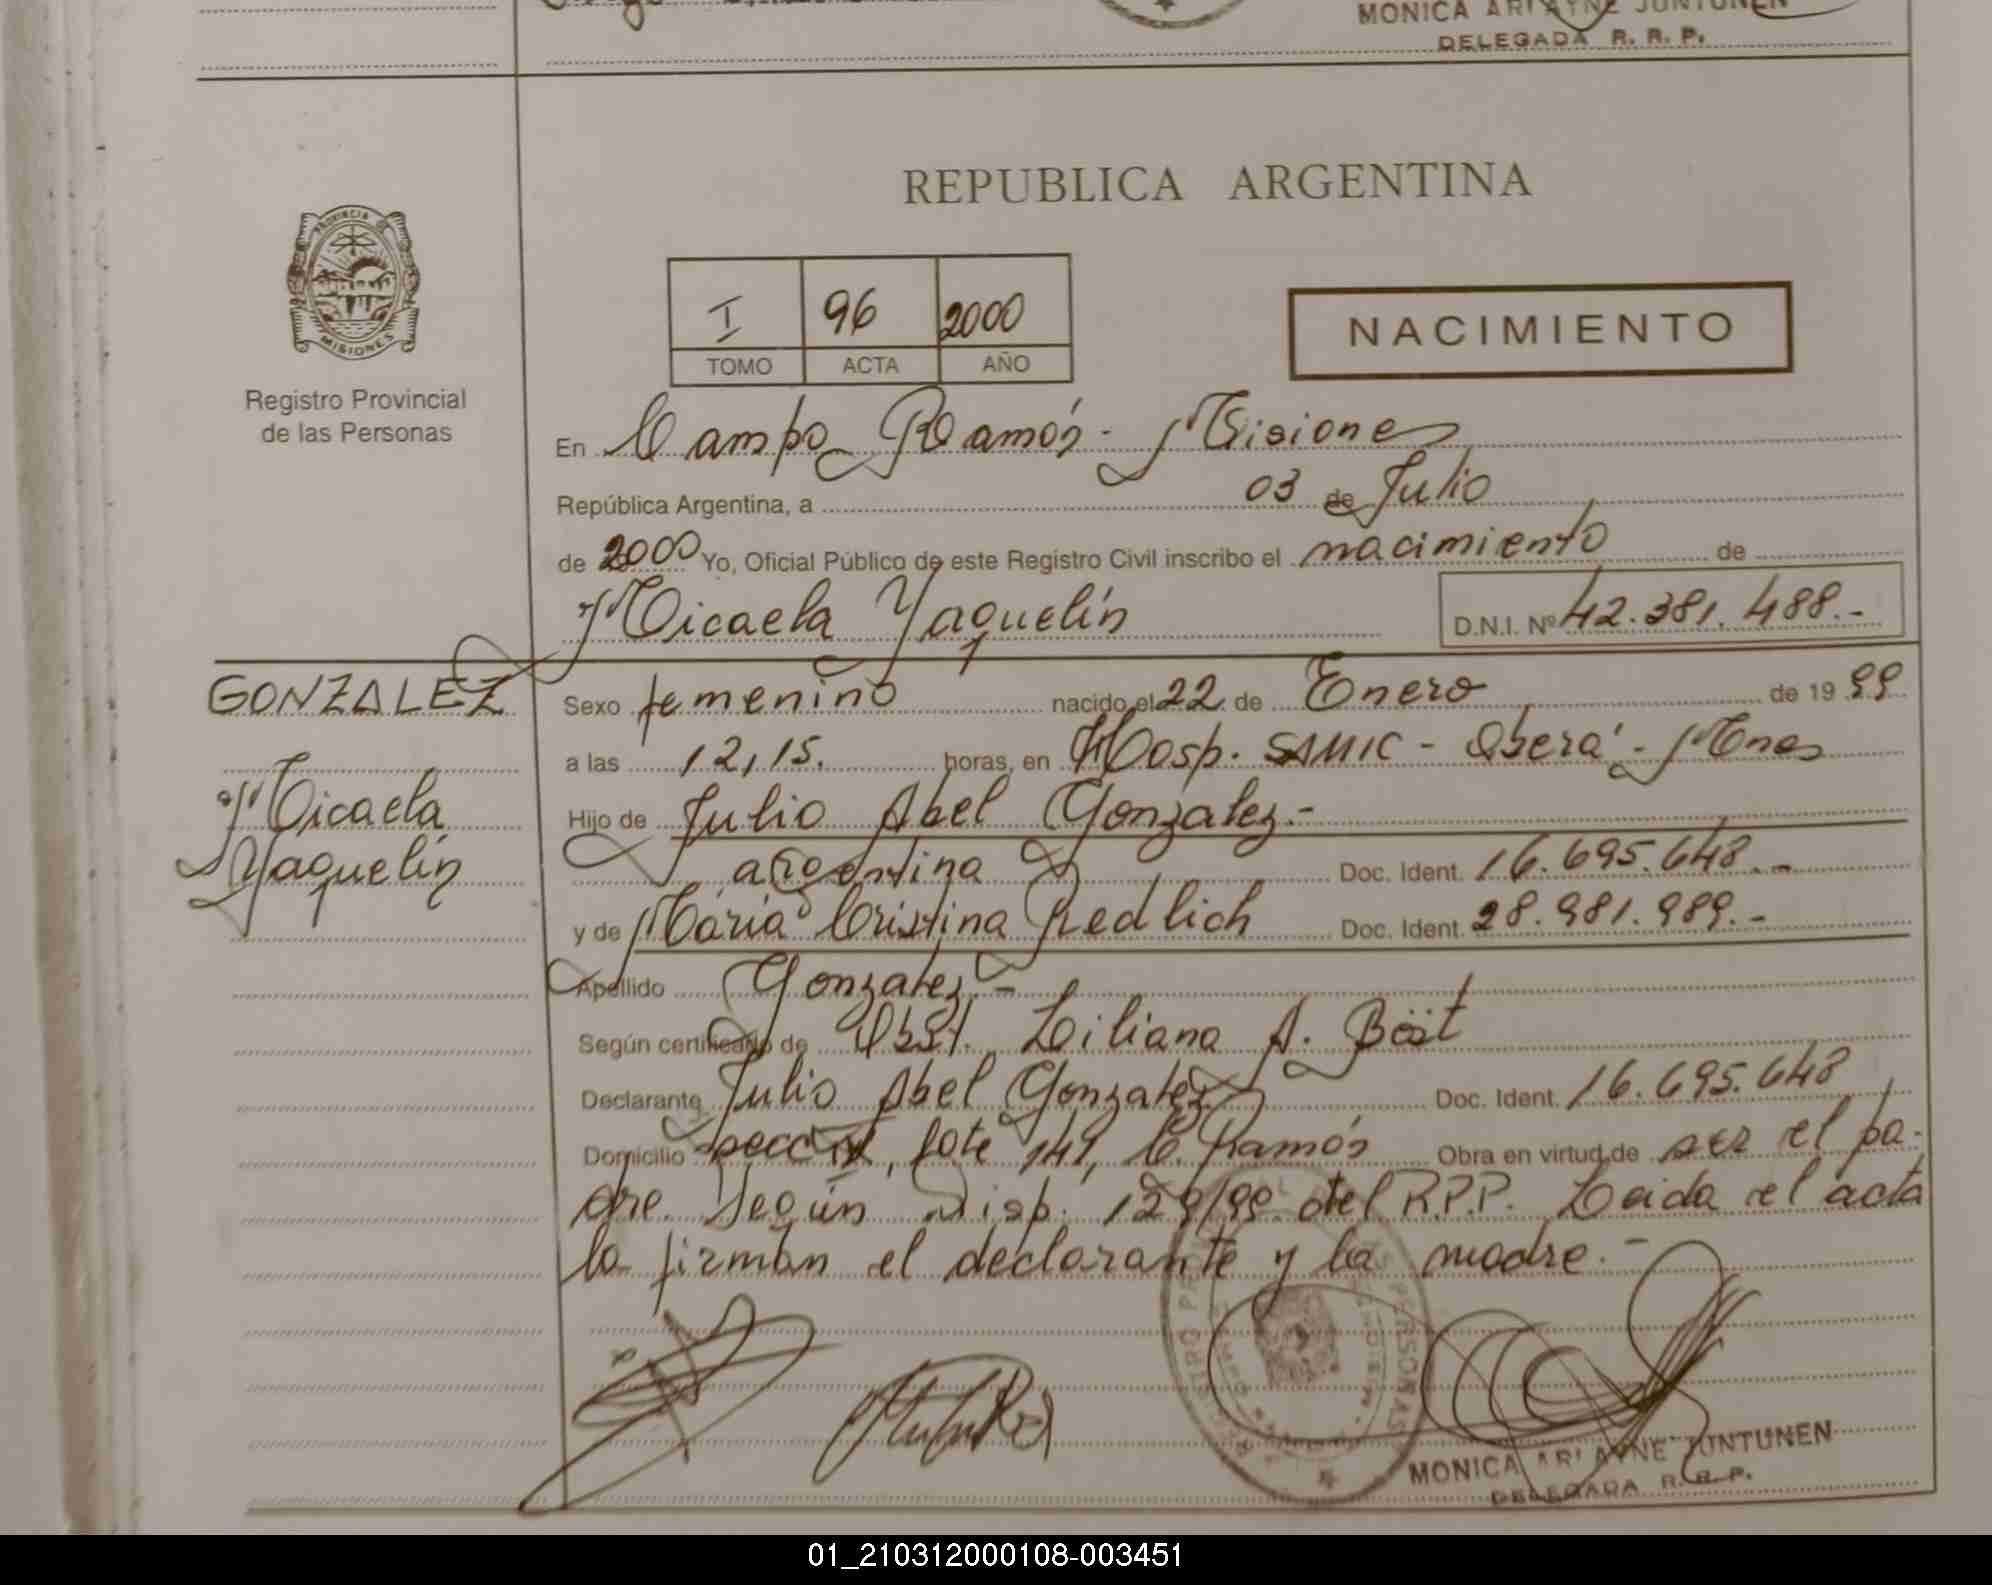 MONICA ARIAYNE JUNTUNEN
DELEGADA R. R. P.
REPUBLICA ARGENTINA
PROVINCIA
MISIONES
Registro Provincial
de las Personas
I 96 2000
TOMO ACTA AÑO
NACIMIENTO
En Campo Ramón - Misiones
República Argentina, a 03 de Julio
de 2000 Yo, Oficial Público de este Registro Civil inscribo el nacimiento de
Micaela Yaquelín D.N.I. Nº 42.381.488.-
GONZALEZ
Micaela
Yaquelín
Sexo femenino nacido el 22 de Enero de 1999
a las 12,15. horas, en Hosp. SAMIC - Oberá - Mnes
Hijo de Julio Abel Gonzalez.-
argentina Doc. Ident. 16.695.648.-
y de María Cristina Redlich Doc. Ident. 28.981.989.-
Apellido Gonzalez.-
Según certificado de Obst. Liliana A. Böit
Declarante Julio Abel Gonzalez Doc. Ident. 16.695.648
Domicilio secc IX, lote 141, C. Ramón Obra en virtud de ser el pa-
dre. Según Disp. 129/99 del R.P.P. Leida el acta
la firman el declarante y la madre.-
MONICA ARIAYNE JUNTUNEN
DELEGADA R. R. P.
01_210312000108-003451